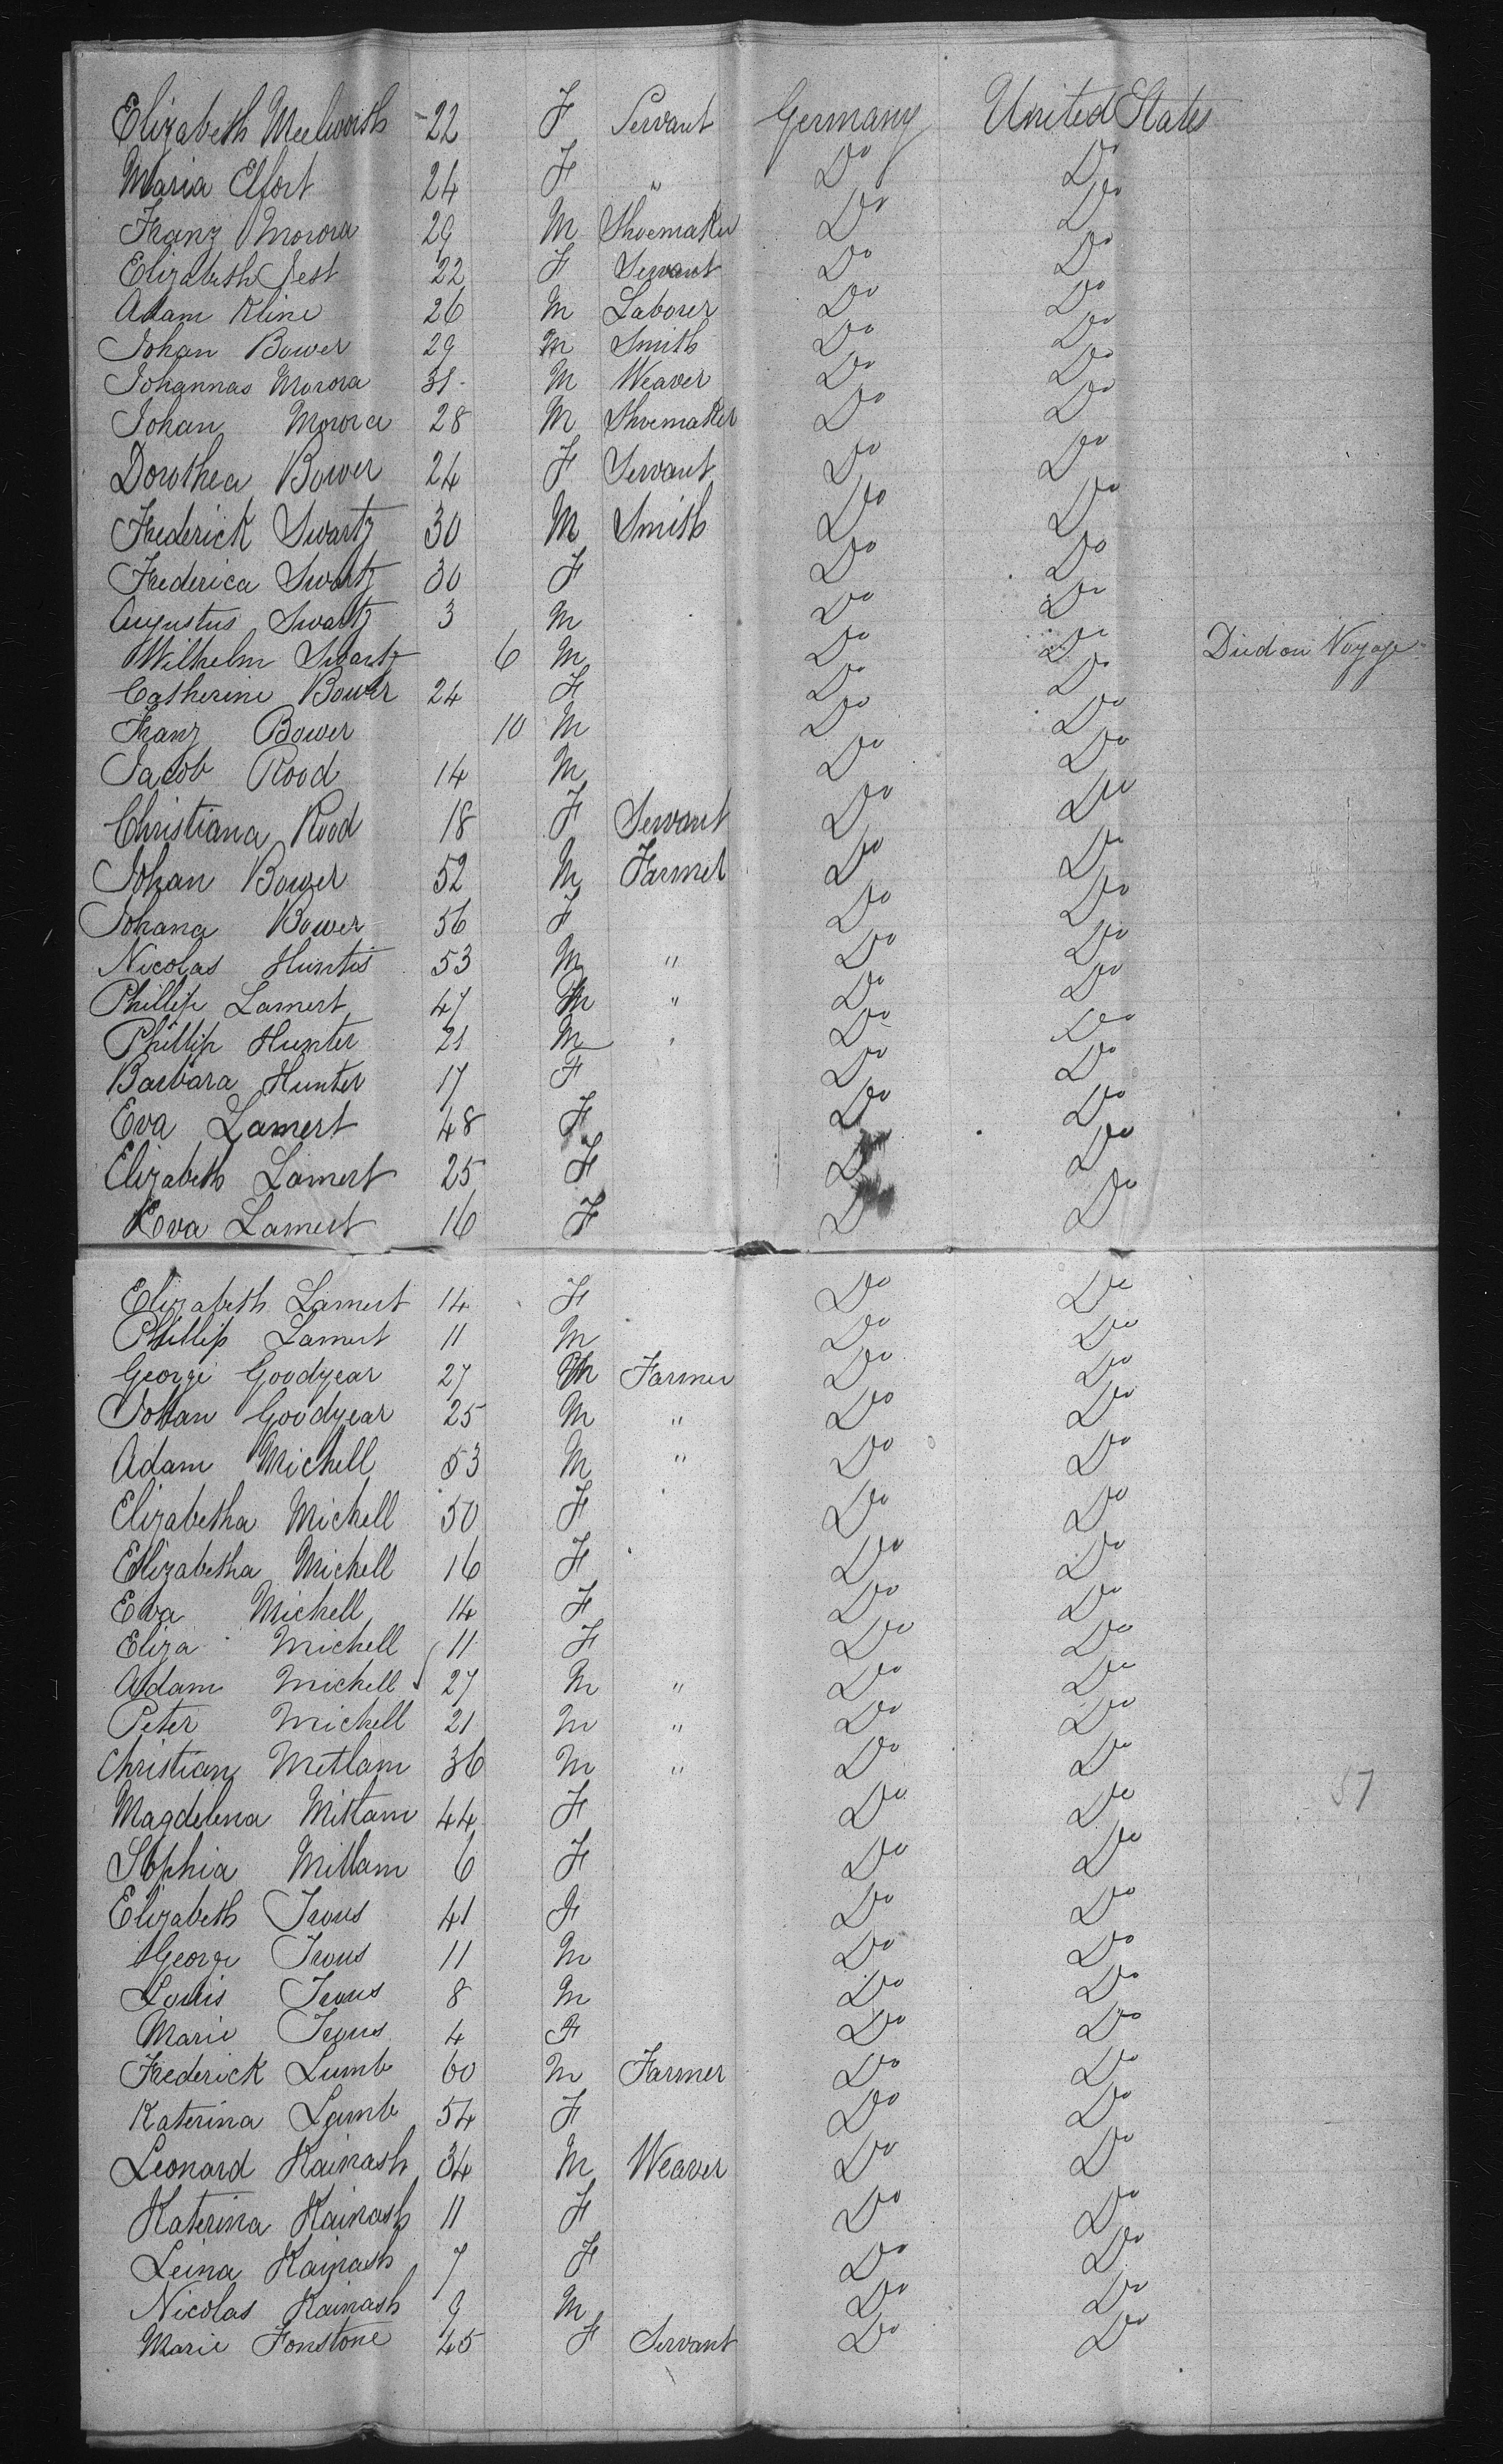 Elizabeth 22 F Servant Germany United States
Maria Elfort 24 F " Do Do
Franz Morora 29 M Shoemaker Do Do
Elizabeth Jest 22 F Servant Do Do
Adam Kline 26 M Laborer Do Do
Johan Bower 29 M Smith Do Do
Johannas Morora 31 M Weaver Do Do
Johan Morora 28 M Shoemaker Do Do
Dorothea Bower 24 F Servant Do Do
Frederick Swartz 30 M Smith Do Do
Frederica Swartz 30 F Do Do
Augustus Swartz 3 M Do Do
Wilhelm Swartz 6 M Do Do Died on Voyage
Catherine Bower 24 F Do Do
Franz Bower 10 M Do Do
Jacob Rood 14 M Do Do
Christiana Rood 18 F Servant Do Do
Johan Bower 52 M Farmer Do Do
Johana Bower 56 F Do Do
Nicolas 53 M " Do Do
Phillip Lamert 47 M " Do Do
Phillip Hunter 21 M " Do Do
Barbara Hunter 17 F Do Do
Eva Lamert 48 F Do Do
Elizabeth Lamert 25 F Do Do
Eva Lamert 16 F Do Do
Elizabeth Lamert 14 F Do Do
Phillip Lamert 11 M Do Do
George Goodyear 27 M Farmer Do Do
Johan Goodyear 25 M " Do Do
Adam Michell 53 M " Do Do
Elizabetha Michell 50 F Do Do
Elizabetha Michell 16 F Do Do
Eva Michell 14 F Do Do
Eliza Michell 11 F Do Do
Adam Michell 27 M " Do Do
Peter Michell 21 M " Do Do
Christian Mitlam 36 M " Do Do
Magdelena Mitlam 44 F Do Do
57
Sophia Mitlam 6 F Do Do
Elizabeth Irous 41 F Do Do
George Irous 11 M Do Do
Louis Irous 8 M Do Do
Marie Irous 4 F Do Do
Frederick Lumb 60 M Farmer Do Do
Katerina Lamb 54 F Do Do
Leonard Kainash 34 M Weaver Do Do
Katerina Kainash 11 F Do Do
Leina Kainash 7 F Do Do
Nicolas Kainash 9 M Do Do
Marie Fonstone 45 F Servant Do Do